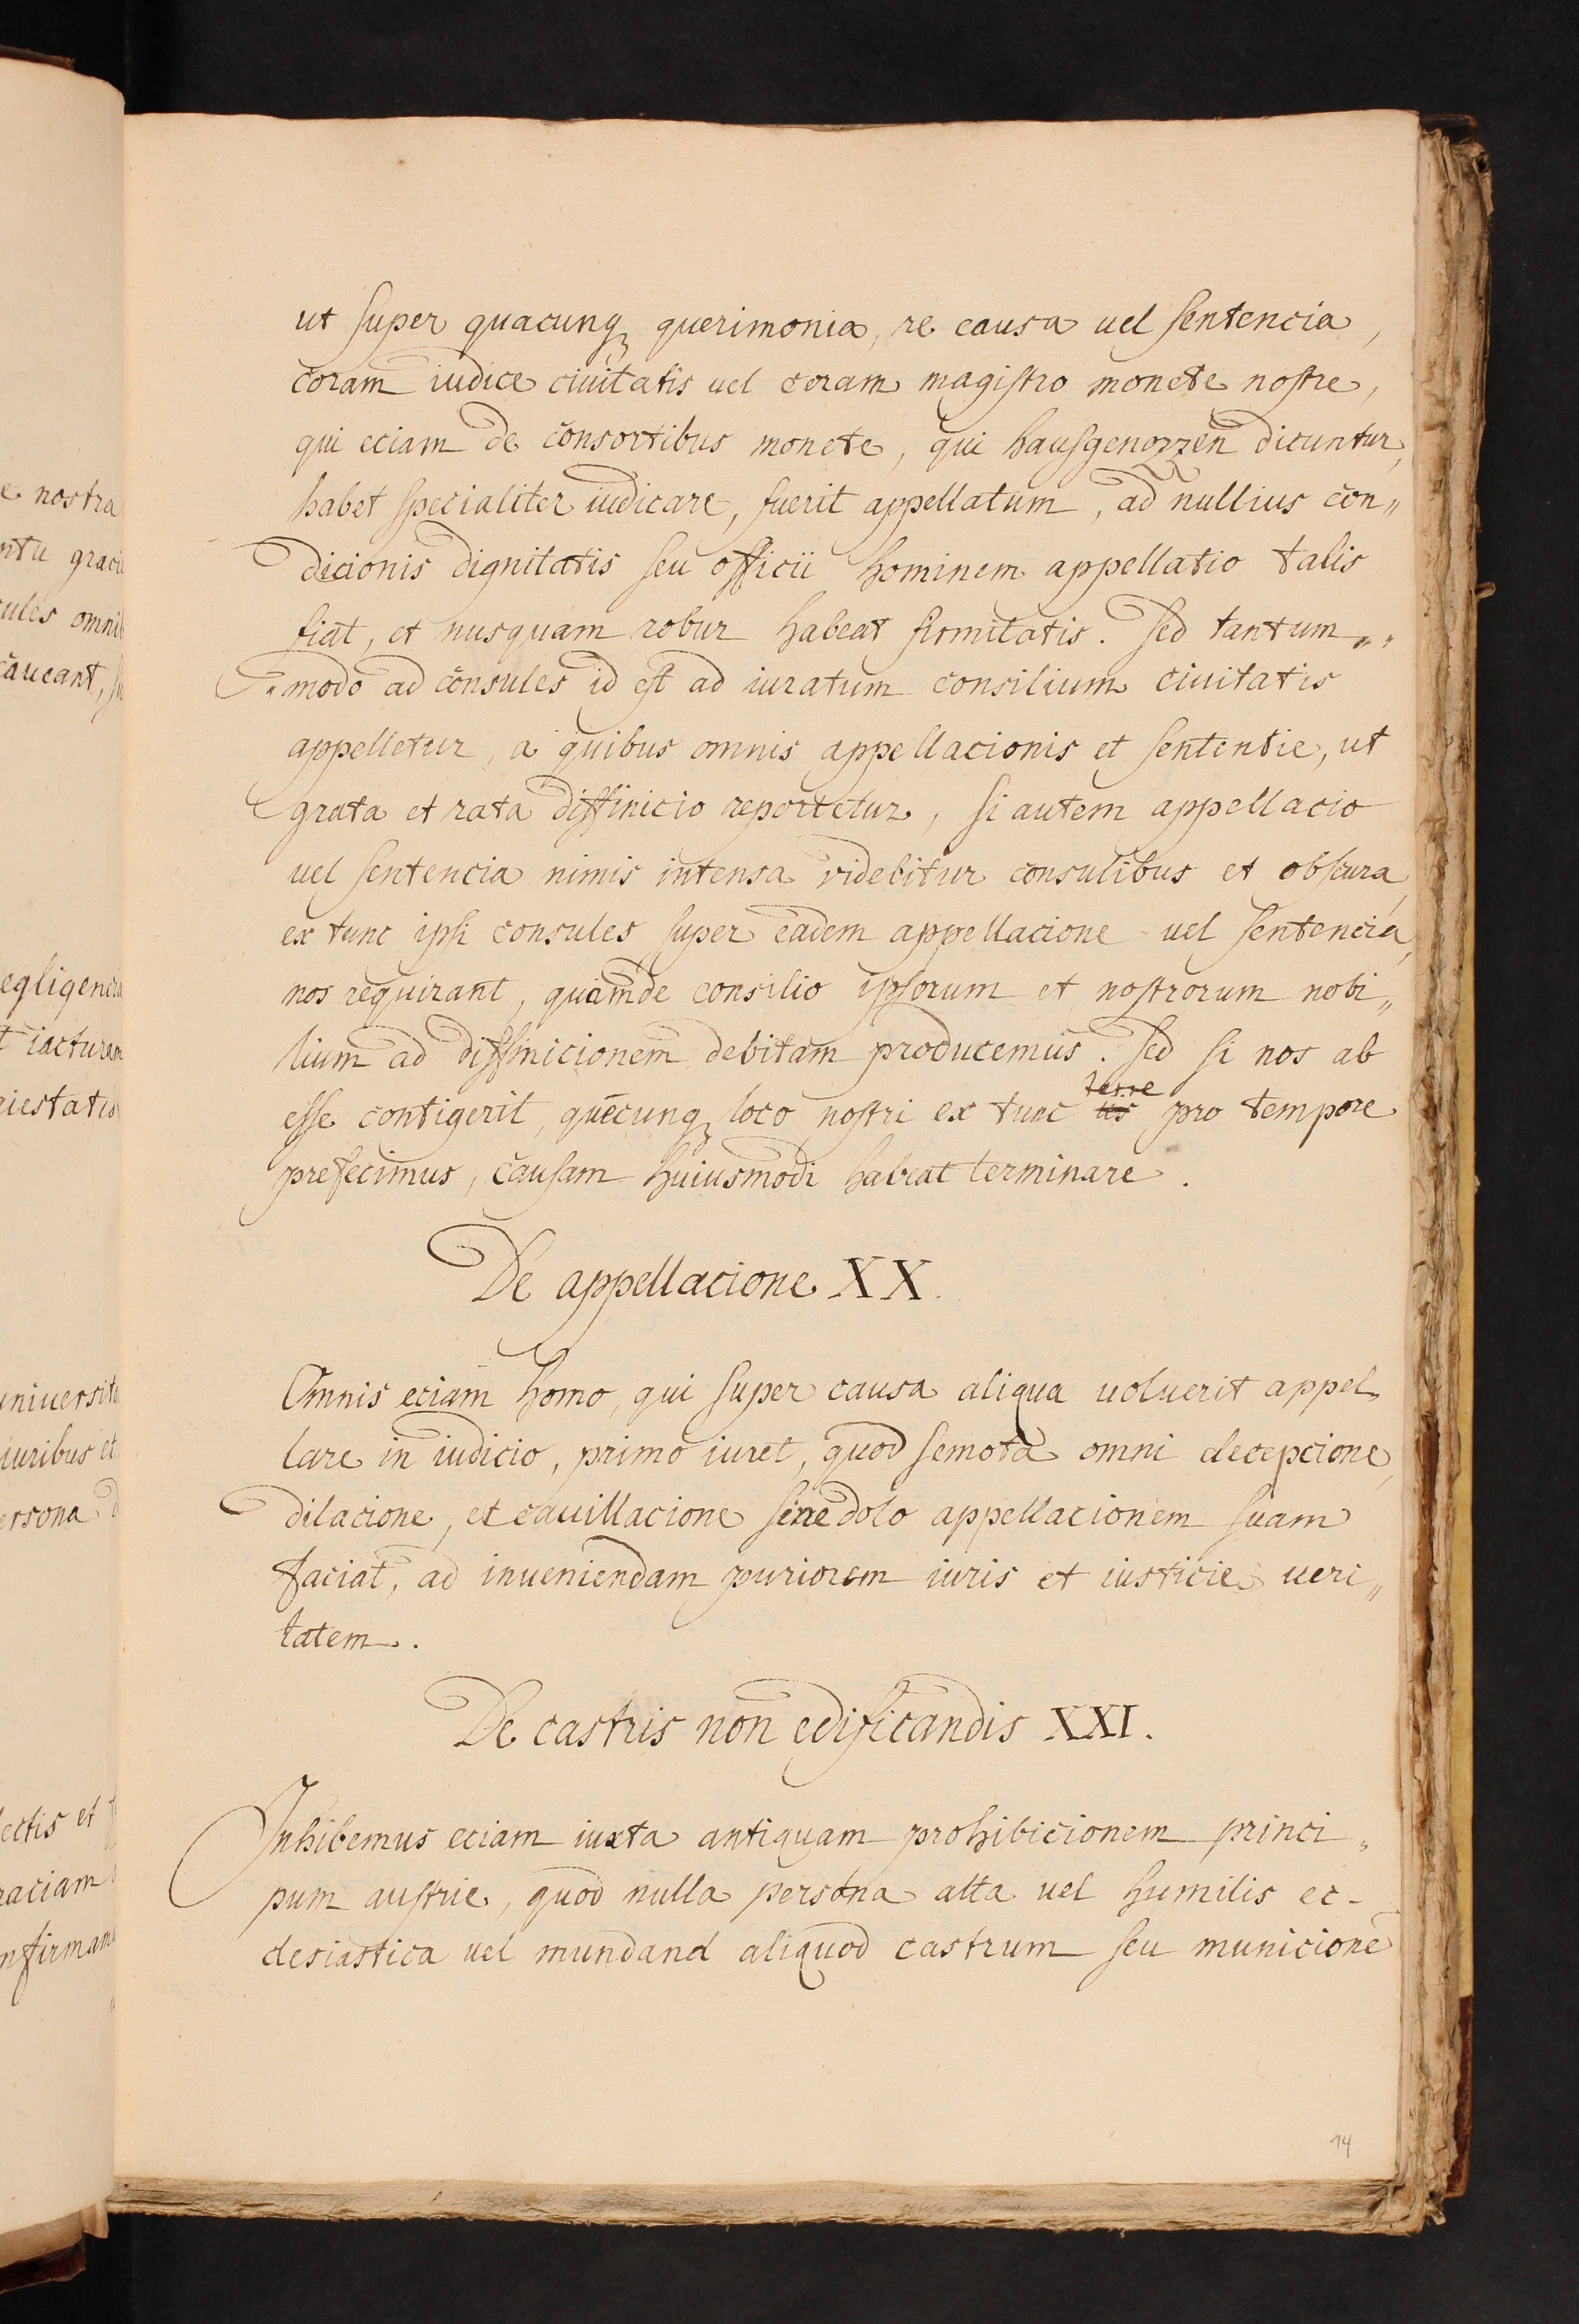 ut super quacunqꝫ querimonia, re causa uel sentencia,
coram iudice ciuitatis uel coram magistro monete nostre,
qui eciam de consortibus monete, qui hausgenozzen dicuntur,
habet specialiter iudicare, fuerit appellatum, ad nullius con„
dicionis dignitatis seu officii hominem appellatio talis
fiat, et nusquam robur habeat firmitatis. Sed tantum„„
„modo ad consules id est ad iuratum consilium ciuitatis
appelletur, a quibus omnis appellacionis et sententie, ut
grata et rata diffinicio reportetur, si autem appellacio
uel sentencia nimis intensa videbitur consulibus et obscura,
ex tunc ipsi consules super eadem appellacione uel sentencia,
nos requirant, quam de consilio ipsorum et nostrorum nobi„
lium ad diffinicionem debitam producemus. Sed si nos ab
esse contigerit, quēcunqꝫ loco nostri ex tunc us terre pro tempore
prefecimus, causam huiusmodi habeat terminare.
De appellacione XX.
Omnis eciam homo, qui super causa aliqua uoluerit appel„
lare in iudicio, primo iuret, quod semota omni decepcione,
dilacione, et cauillacione sine dolo appellacionem suam
faciat, ad inueniendam puriorem iuris et iusticie ueri„
tatem.
De castris non edificandis XXI.
Inhibemus eciam iuxta antiquam prohibicionem princi„
pum austrie, quod nulla persona alta uel humilis ec-
clesiastica uel mundana aliquod castrum seu municionē
14
e nostra
ntu graci
cules omni
caueant,
egligenci
t iacturam
aiestatis
uniuersit
iuribus et
ersona
lectis et
raciam
nfirmam